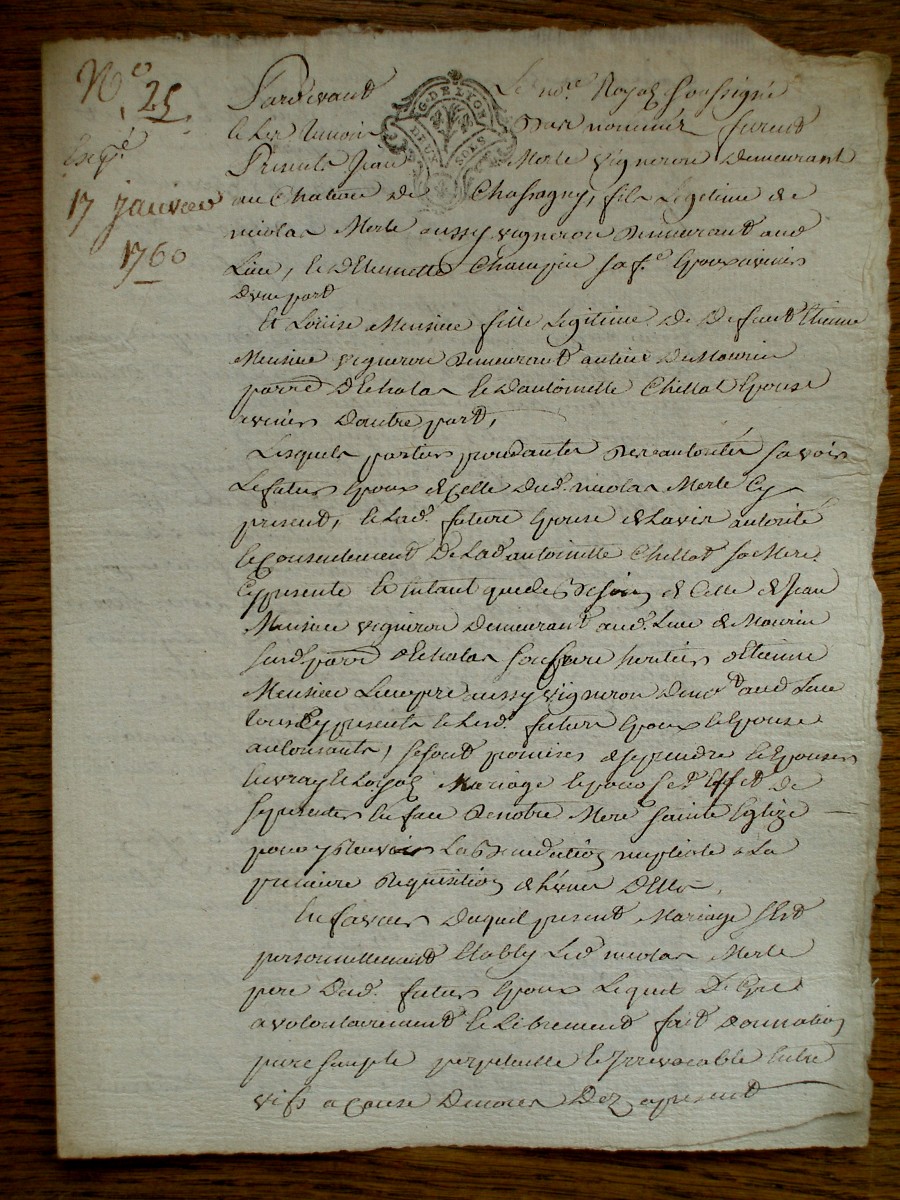 N.o 25
Exp.é
17 janvier
1760
G. DE LYON
DEUX SOLS
Pardevant Le no.re Royal soussigné
et les temoins Bas nommés furent
Presents Jean Merle vigneron demeurant
au Chateau de Chassagny, fils Legitime de
nicolas Merle aussy vigneron demeurant aud
Lieu, et d'Etiennette Champin sa f.e
D'une part
Et Louise Mensine fille Legitime de Defunt Etienne
Mensine vigneron demeurant au lieu de Mourin
parr d'Echalas et d'antoinette Chillat Epouse
d'autre part,
Lesquels parties procedantes savoir
Le futur Epoux de Celle dud. nicolas Merle Cy
present, et Lad. future Epouse de Lavis autorité
et Consentement De Lad antoinette Chillat sa Mere
Cy presente et entant que de Besoin de Celle de Jean
Mensine vigneron demeurant aud. Lieu de Mourin
susd. parr d'Echalas son frere heritier d'Etienne
Mensine Leur pere aussy vigneron demt aud Lieu
tous Cy presents et Lesd. futurs Epoux et Epouse
autorisants, se sont promises de se prendre et Epouser
En vray et Loyal Mariage et pour Cet Effet de
se presenter En face de notre Mere Sainte Eglize
pour y Recevoir La Benediction nuptiale a La
premiere Requisition de L'une D'Elle.
En faveur duquel present Mariage s'Est
personnellement Etably Led nicolas Merle
pere dud. futur Epoux Lequel De Gré
a volontairement et Librement fait donnation
pure simple perpetuelle et Irrevocable Entre
vifs a Cause de noces Dez apresent